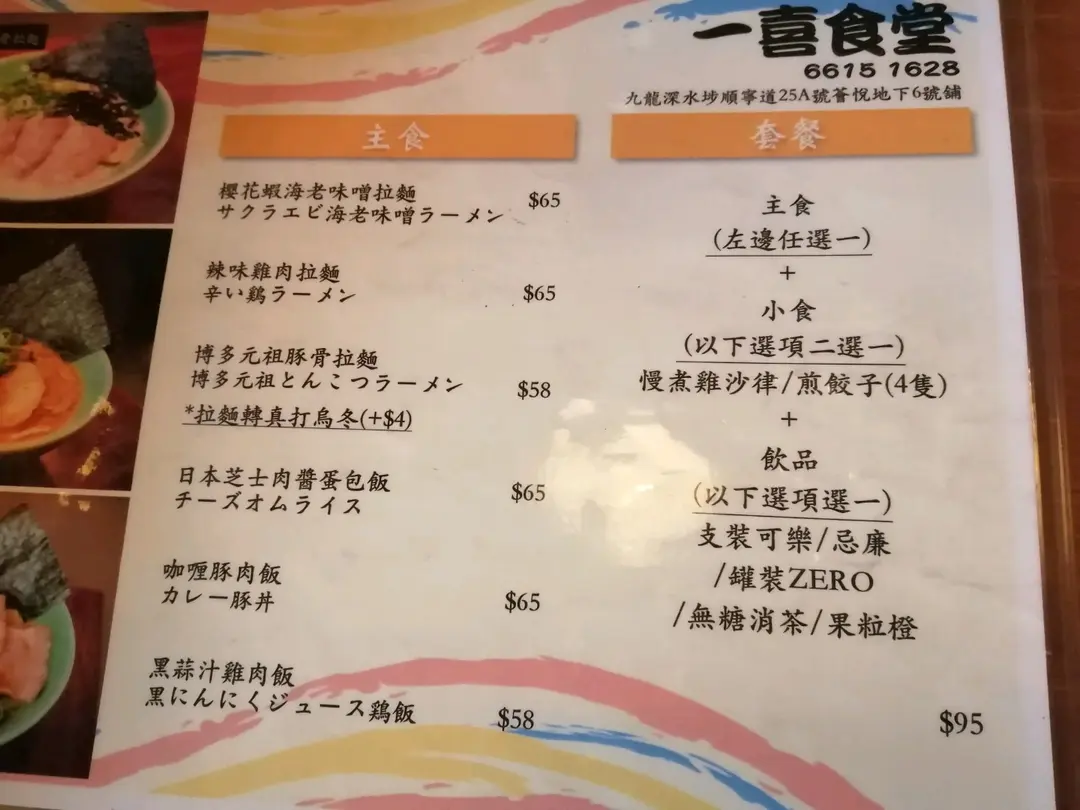 一喜食堂
6615 1628
九龍深水埗順寧道25A號薈悅地下6號舖
主食
櫻花蝦海老味噌拉麵
サクラエビ海老味噌ラーメン
$65
辣味雞肉拉麵
辛い鶏ラーメン
$65
博多元祖豚骨拉麵
博多元祖とんこつラーメン
$58
*拉麵轉真打烏冬(+$4)
日本芝士肉醬蛋包飯
チーズオムライス
$65
咖喱豚肉飯
カレー豚丼
$65
黑蒜汁雞肉飯
黒にんにくジュース鶏飯
$58
套餐
主食
(左邊任選一)
+
小食
(以下選項二選一)
慢煮雞沙律/煎餃子(4隻)
+
飲品
(以下選項選一)
支裝可樂/忌廉
/罐裝ZERO
/無糖消茶/果粒橙
$95